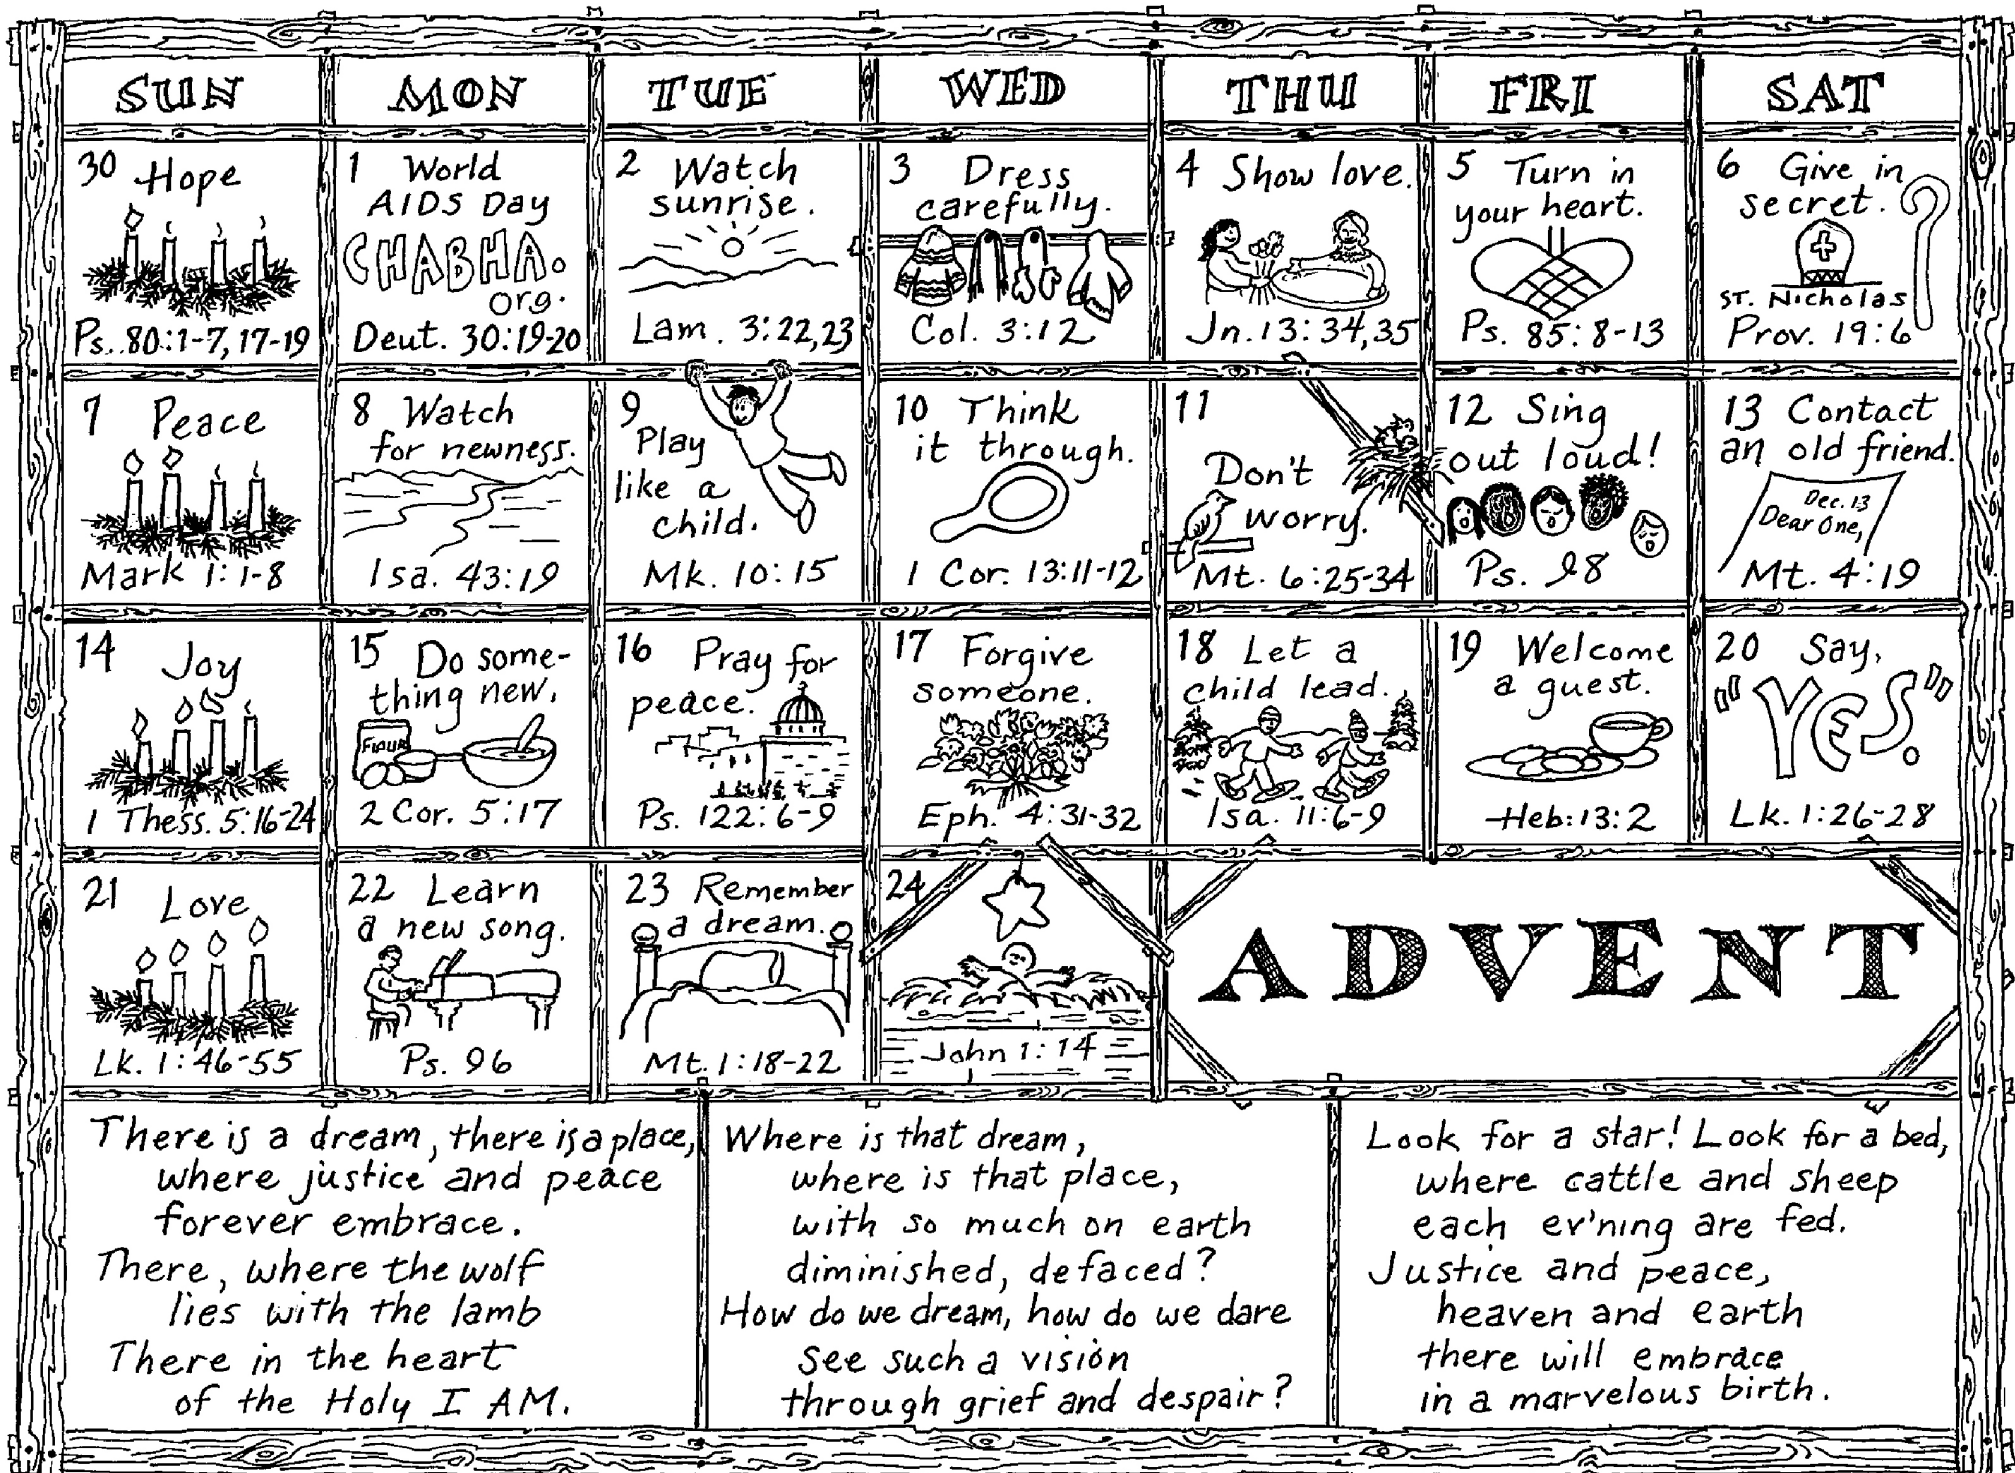 SUN MON TUE WED THU FRI SAT
30 Hope
Ps. 80:1-7, 17-19
1 World
AIDS Day
CHABHA.
org.
Deut. 30:19-20
2 Watch
sunrise.
Lam. 3:22,23
3 Dress
carefully.
Col. 3:12
4 Show love.
Jn. 13:34,35
5 Turn in
your heart.
Ps. 85:8-13
6 Give in
secret.
ST. Nicholas
Prov. 19:6
7 Peace
Mark 1:1-8
8 Watch
for newness.
Isa. 43:19
9
Play
like a
child.
Mk. 10:15
10 Think
it through.
1 Cor. 13:11-12
11
Don't
worry.
Mt. 6:25-34
12 Sing
out loud!
Ps. 98
13 Contact
an old friend.
Dec. 13
Dear One,
Mt. 4:19
14 Joy
1 Thess. 5:16-24
15 Do some-
thing new.
Flour
2 Cor. 5:17
16 Pray for
peace.
Ps. 122:6-9
17 Forgive
someone.
Eph. 4:31-32
18 Let a
child lead.
Isa. 11:6-9
19 Welcome
a guest.
Heb:13:2
20 Say,
"YES."
Lk. 1:26-28
21 Love
Lk. 1:46-55
22 Learn
a new song.
Ps. 96
23 Remember
a dream.
Mt. 1:18-22
24
John 1:14
ADVENT
There is a dream, there is a place,
where justice and peace
forever embrace.
There, where the wolf
lies with the lamb
There in the heart
of the Holy I AM.
Where is that dream,
where is that place,
with so much on earth
diminished, defaced?
How do we dream, how do we dare
see such a vision
through grief and despair?
Look for a star! Look for a bed,
where cattle and sheep
each ev'ning are fed.
Justice and peace,
heaven and earth
there will embrace
in a marvelous birth.